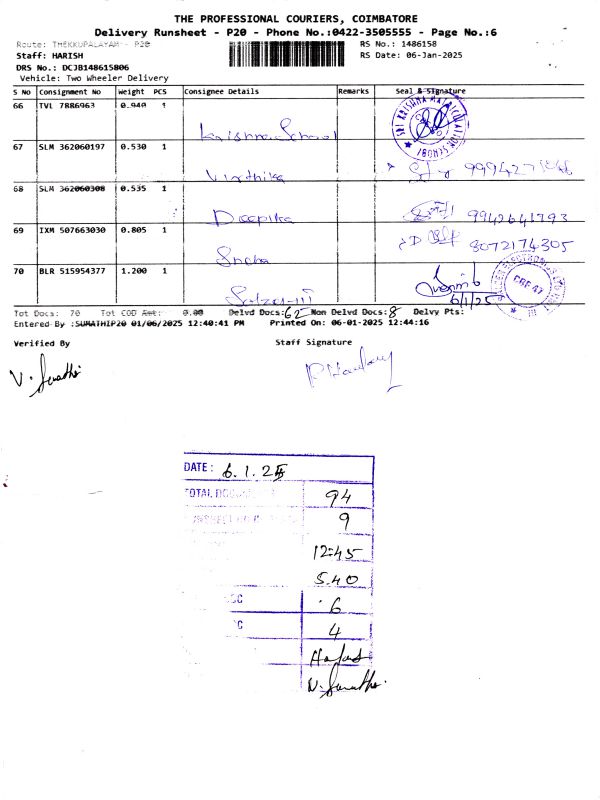 THE PROFESSIONAL COURIERS, COIMBATORE
Delivery Runsheet - P20 - Phone No.:0422-3505555 - Page No.:6
Route: THEKKUPALAYAM - P20
RS No.: 1486158
Staff: HARISH
RS Date: 06-Jan-2025
DRS No.: DCJB148615806
Vehicle: Two Wheeler Delivery
S No Consignment No Weight PCS Consignee Details Remarks Seal & Signature
66 TVL 7886963 0.940 1
Krishna School
SRI KRISHNA MATRICULATION SCHOOL
67 SLM 362060197 0.530 1
Virthika
68 SLM 362060308 0.535 1
Deepika 9942641793
69 IXM 507663030 0.805 1
Sneha 8072174305
70 BLR 515954377 1.200 1
6/1/25
Tot Docs: 70 Tot COD Amt: 0.00 Delvd Docs: 62 Non Delvd Docs: 8 Delvy Pts:
Entered By :SUMATHIP20 01/06/2025 12:40:41 PM Printed On: 06-01-2025 12:44:16
Verified By Staff Signature
DATE: 6.1.25
TOTAL 94
9
12:45
5.40
6
4